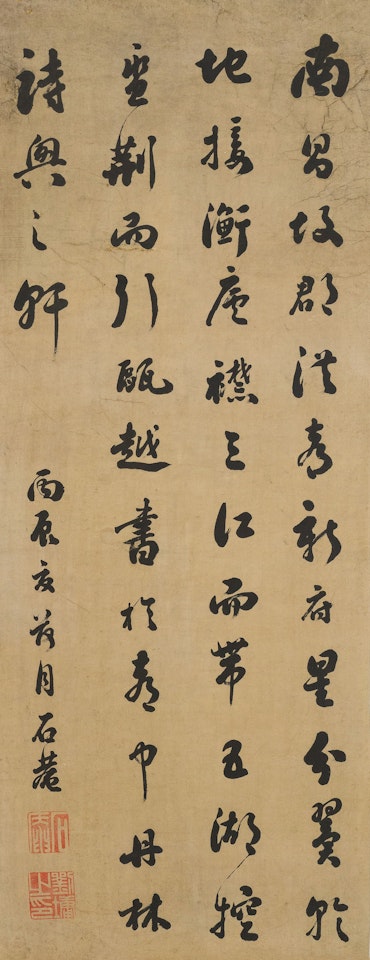 南昌故郡洪都新府星分翼軫
地接衡廬襟三江而帶五湖控
蠻荊而引甌越書於都中丹林
詩興之軒
丙辰夏月石菴
石菴
劉墉之印